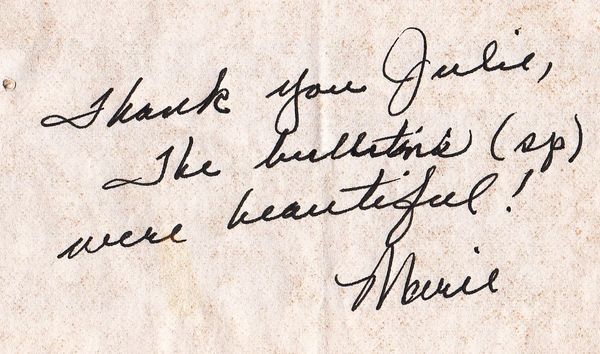 Thank you Julie,
The (sp)
were beautiful!
Marie